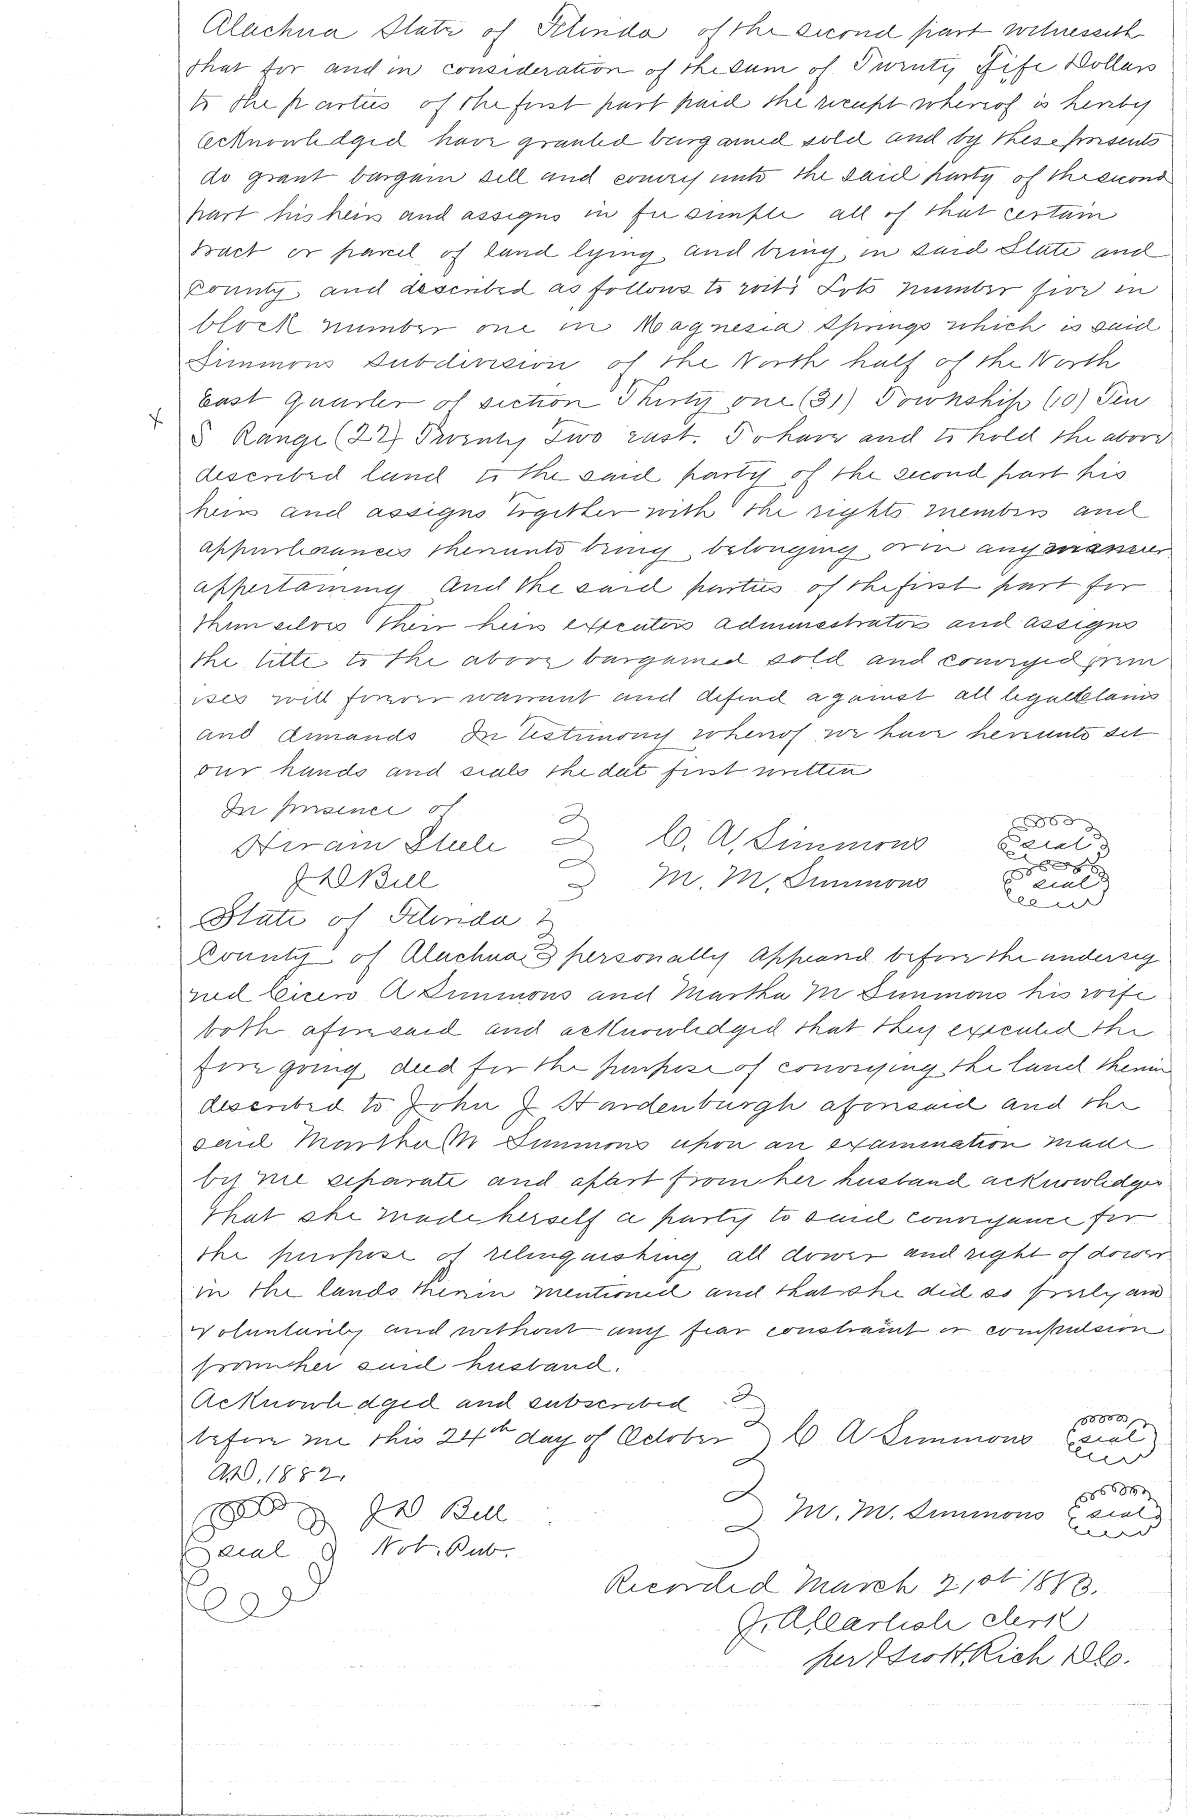 Alachua State of Florida of the second part witnesseth
that for and in consideration of the sum of Twenty fife Dollars
to the parties of the first part paid the receipt whereof is hereby
acknowledged have granted bargained sold and by these presents
do grant bargain sell and convey unto the said party of the second
part his heirs and assigns in fee simple all of that certain
tract or parcel of land lying and being in said State and
County and described as follows to wit: Lots number five in
block number one in Magnesia Springs which is said
Simmons Subdivision of the North half of the North
East Quarter of section Thirty one (31) Township (10) Ten
S Range (22) Twenty Two east. To have and to hold the above
described land to the said party of the second part his
heirs and assigns together with the rights members and
appurtenances thereunto being belonging or in any manner
appertaining And the said parties of the first part for
themselves their heirs executors administrators and assigns
the title to the above bargained sold and conveyed prem
ises will forever warrant and defend against all legal claims
and demands In testimony whereof we have hereunto set
our hands and seals the dat first written
In presence of
Hiram Steele C. A. Simmons seal
J W Bell M. M. Simmons seal
State of Florida
County of Alachua personally appeared before the undersig
ned Cicero A Simmons and Martha M Simmons his wife
both aforesaid and acknowledged that they executed the
fore going deed for the purpose of conveying the land therein
described to John J Hardenburgh aforesaid and the
said Martha M Simmons upon an examination made
by me separate and apart from her husband acknowledges
that she made herself a party to said conveyance for
the purpose of relinquishing all dower and right of dower
in the lands therein mentioned and that she did so freely and
voluntarily and without any fear constraint or compulsion
from her said husband.
Acknowledged and subscribed
before me this 24th day of October C A Simmons seal
A.D. 1882.
J W Bell M. M. Simmons seal
seal Not. Pub.
Recorded March 21st 1883.
J. A. Carlisle clerk
per Scott Rich D.C.